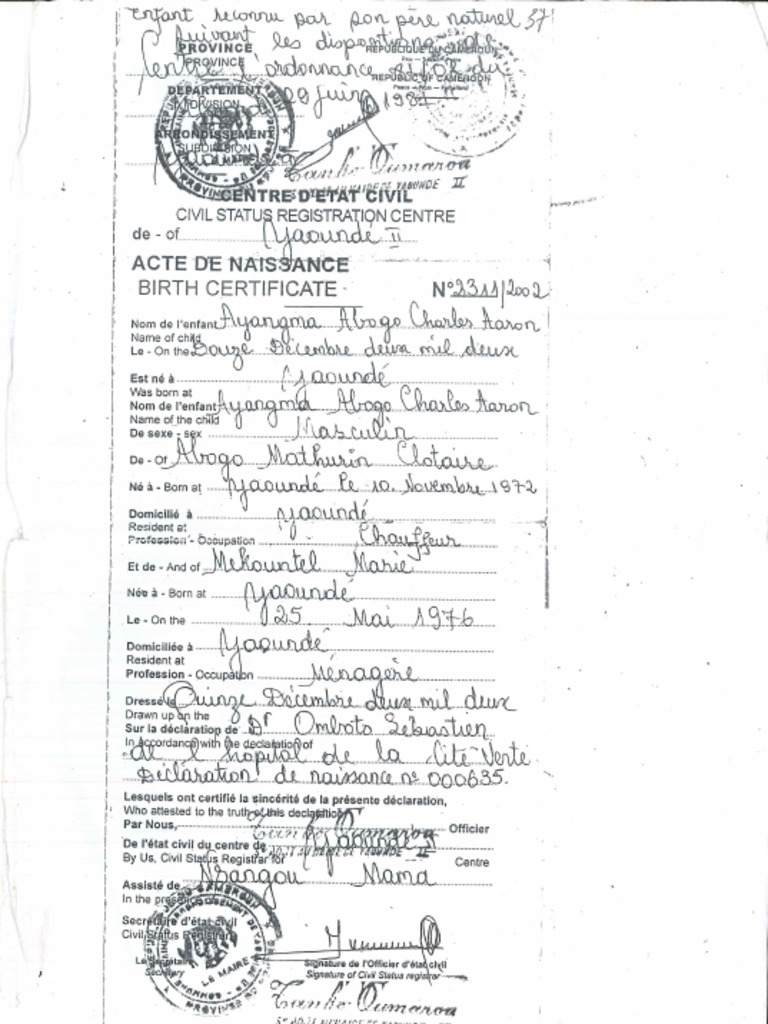 Enfant reconnu par son père naturel 37
suivant les dispositions de
PROVINCE
PROVINCE
REPUBLIQUE DU CAMEROUN
Centre l'ordonnance
REPUBLIC OF CAMEROON
DEPARTEMENT
DIVISION
Juin 1981
ARRONDISSEMENT
SUBDIVISION
Tanko Oumarou
YAOUNDE II
CENTRE D'ETAT CIVIL
CIVIL STATUS REGISTRATION CENTRE
de - of Yaoundé II
ACTE DE NAISSANCE
BIRTH CERTIFICATE
N° 2311/2002
Nom de l'enfant Ayangma Abogo Charles Aaron
Name of child
Le - On the Douze Décembre deux mil deux
Est né à Yaoundé
Was born at
Nom de l'enfant Ayangma Abogo Charles Aaron
Name of the child
De sexe - sex Masculin
De - Of Abogo Mathurin Clotaire
Né à - Born at Yaoundé le 10 Novembre 1972
Domicilié à Yaoundé
Resident at
Profession - Occupation Chauffeur
Et de - And of Mekountel Marie
Née à - Born at Yaoundé
Le - On the 25 Mai 1976
Domiciliée à Yaoundé
Resident at
Profession - Occupation Ménagère
Dressé le Quinze Décembre deux mil deux
Drawn up on the
Sur la déclaration de Dr Omboto Sebastien
In accordance with the declaration of
de l'hopital de la Cité Verte
Déclaration de naissance n° 000635.
Lesquels ont certifié la sincérité de la présente déclaration,
Who attested to the truth of this declaration
Par Nous, Tanko Oumarou Officier
De l'état civil du centre de Yaoundé II
By Us, Civil Status Registrar for Centre
Assisté de Nsangou Mama
In the presence of
Secrétaire d'état civil
Civil Status Registrar
Le Secrétaire
Secretary
LE MAIRE
Signature de l'Officier d'état civil
Signature of Civil Status registrar
Tanko Oumarou